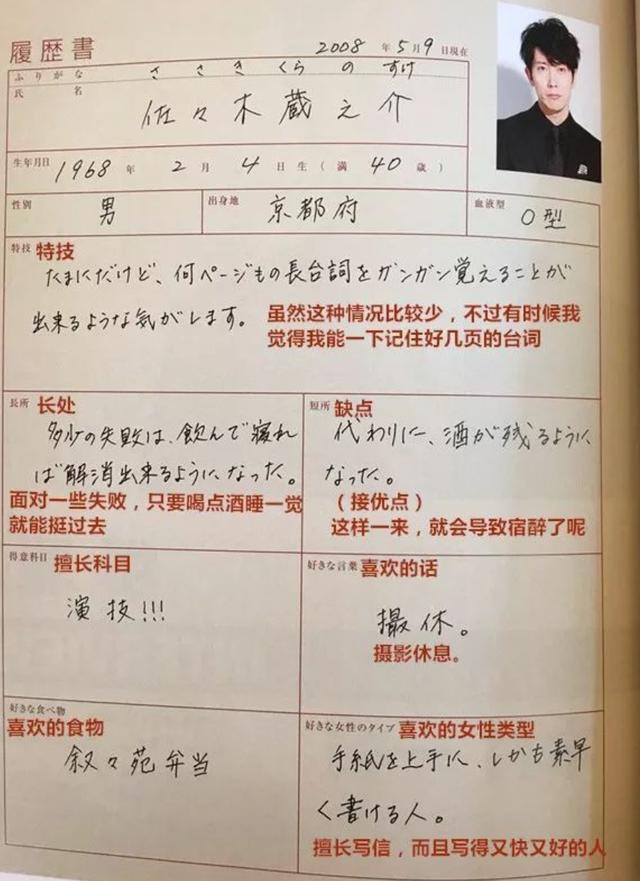 履歴書
2008 年 5 月 9 日現在
ふりがな ささき くら の すけ
氏 名 佐々木 蔵之介
生年月日 1968 年 2 月 4 日生 ( 満 40 歳 )
性別 男 出身地 京都府 血液型 O型
特技 特技
たまにだけど、何ページもの長台詞をガンガン覚えることが
出来るような気がします。
虽然这种情况比较少，不过有时候我
觉得我能一下记住好几页的台词
長所 长处
多少の失敗は、飲んで寝れ
ば解消出来るようになった。
面对一些失败，只要喝点酒睡一觉
就能挺过去
短所 缺点
代わりに、酒が残るように
なった。
（接优点）
这样一来，就会导致宿醉了呢
得意科目 擅长科目
演技!!!
好きな言葉 喜欢的话
撮休。
摄影休息。
好きな食べ物
喜欢的食物
叙々苑弁当
好きな女性のタイプ 喜欢的女性类型
手紙を上手に、しかも素早
く書ける人。
擅长写信，而且写得又快又好的人